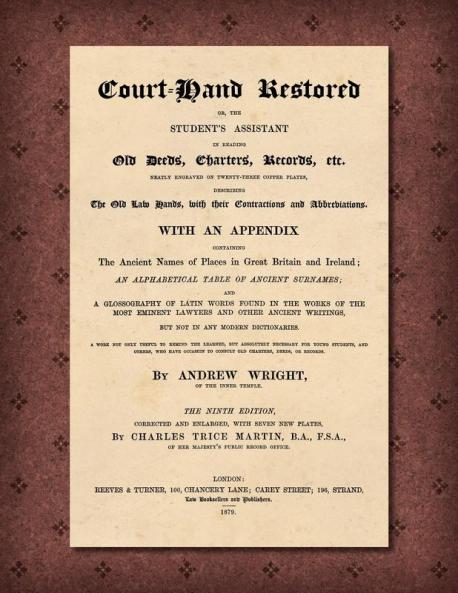 Court-Hand Restored
OR, THE
STUDENT'S ASSISTANT
IN READING
Old Deeds, Charters, Records, etc.
NEATLY ENGRAVED ON TWENTY-THREE COPPER PLATES,
DESCRIBING
The Old Law Hands, with their Contractions and Abbreviations.
WITH AN APPENDIX
CONTAINING
The Ancient Names of Places in Great Britain and Ireland;
AN ALPHABETICAL TABLE OF ANCIENT SURNAMES;
AND
A GLOSSOGRAPHY OF LATIN WORDS FOUND IN THE WORKS OF THE
MOST EMINENT LAWYERS AND OTHER ANCIENT WRITINGS,
BUT NOT IN ANY MODERN DICTIONARIES.
A WORK NOT ONLY USEFUL TO REMIND THE LEARNED, BUT ABSOLUTELY NECESSARY FOR YOUNG STUDENTS, AND
OTHERS, WHO HAVE OCCASION TO CONSULT OLD CHARTERS, DEEDS, OR RECORDS.
BY ANDREW WRIGHT,
OF THE INNER TEMPLE.
THE NINTH EDITION,
CORRECTED AND ENLARGED, WITH SEVEN NEW PLATES,
BY CHARLES TRICE MARTIN, B.A., F.S.A.,
OF HER MAJESTY'S PUBLIC RECORD OFFICE.
LONDON:
REEVES & TURNER, 100, CHANCERY LANE; CAREY STREET; 196, STRAND,
Law Booksellers and Publishers.
1879.